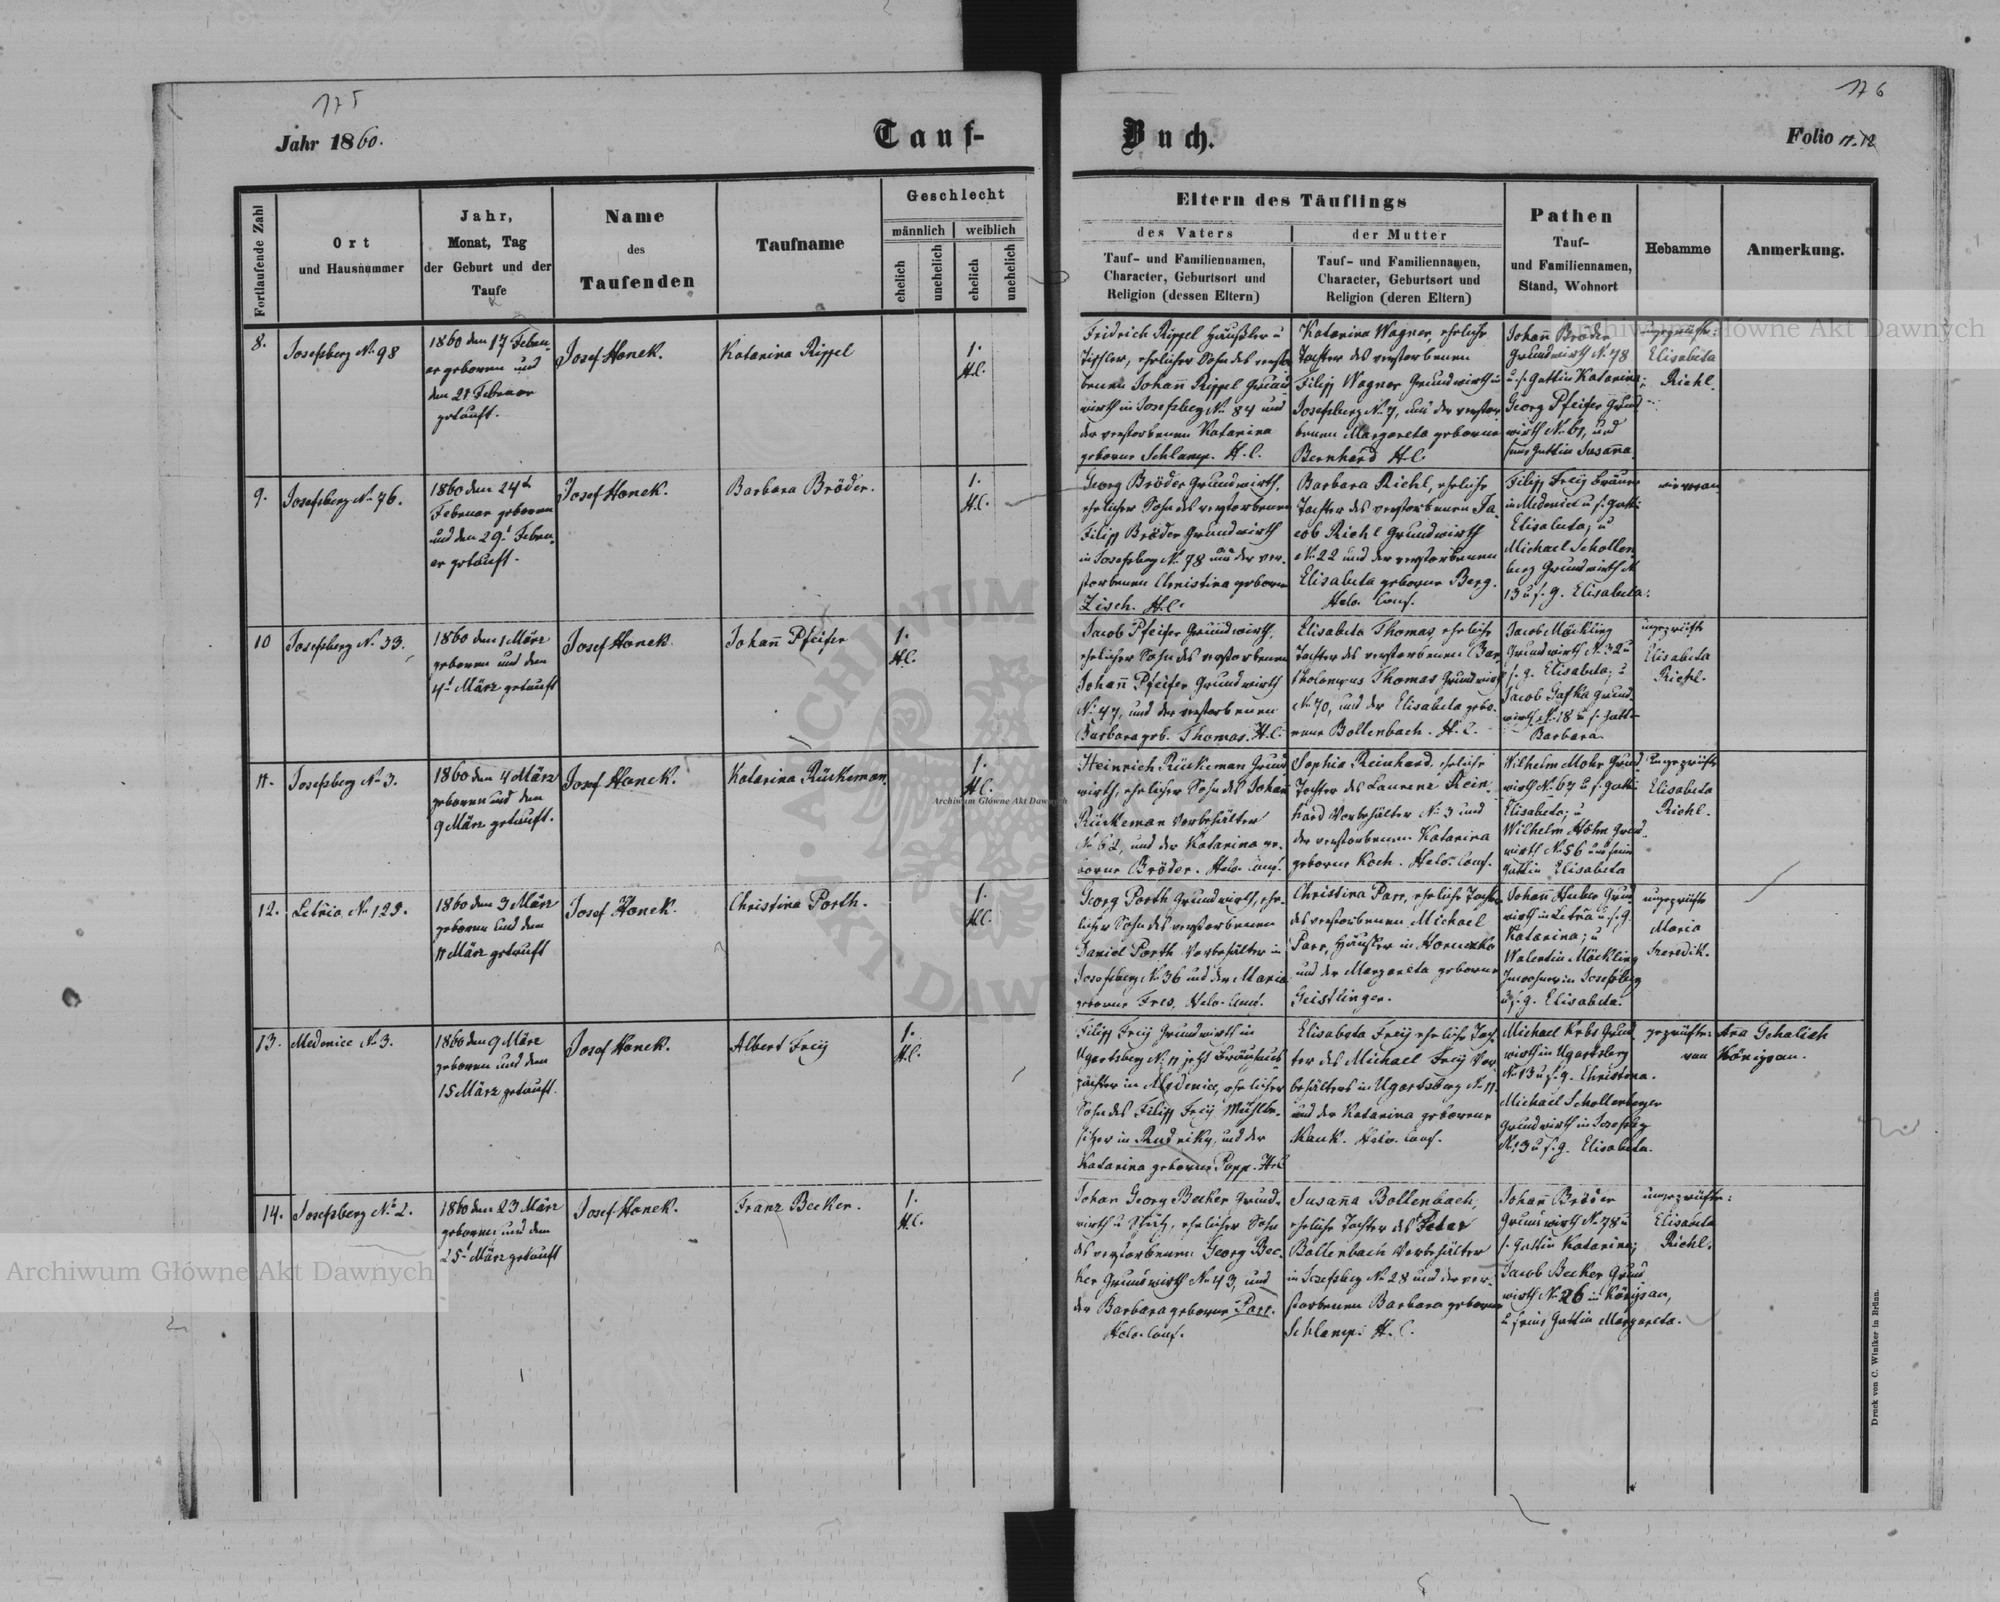 175
176
Jahr 1860.
Tauf-
Buch.
Folio 11.12
Fortlaufende Zahl
Ort
und Hausnummer
Jahr,
Monat, Tag
der Geburt und der
Taufe
Name
des
Taufenden
Taufname
Geschlecht
männlich
weiblich
ehelich
unehelich
ehelich
unehelich
Eltern des Täuflings
des Vaters
Tauf- und Familiennamen,
Character, Geburtsort und
Religion (dessen Eltern)
der Mutter
Tauf- und Familiennamen,
Character, Geburtsort und
Religion (deren Eltern)
Pathen
Tauf-
und Familiennamen,
Stand, Wohnort
Hebamme
Anmerkung.
8.
Josefsberg No 98
1860 den 17 Febru-
ar geboren und
den 21 Februar
getauft.
Josef Honek.
Katarina Rippel
1.
H.C.
Fridrich Rippel Häußler u
Tischler, ehelicher Sohn des versto
benen Johann Rippel Grund
wirth in Josefsberg No 84 und
der verstorbenen Katarina
geborne Schlamp. H.C.
Katarina Wagner, eheliche
Tochter des verstorbenen
Filipp Wagner Grundwirth in
Josefsberg No 7, und der verstor
benen Margareta geborne
Bernhard H.C.
Johann Bröder
Grundwirth No 78
u. s. Gattin Katarina;
Georg Pfeifer Grund
wirth No 61, und
seine Gattin Susanna
ungeprüfte:
Elisabeta
Riehl.
9.
Josefsberg No 76.
1860 den 24t
Februar geboren
und den 29t Febru-
ar getauft.
Josef Honek.
Barbara Bröder.
1.
H.C.
Georg Bröder Grundwirth,
ehelicher Sohn des verstorbenen
Filipp Bröder Grundwirth
in Josefsberg No 78 und der ver-
storbenen Christina geborne
Zisch. H.C.
Barbara Riehl, eheliche
Tochter des verstorbenen Ja-
cob Riehl Grundwirth
No 22 und der verstorbenen
Elisabeta geborne Berg.
Helv. Conf.
Filipp Freÿ Bräuer
in Medenice u. s. Gatti
Elisabeta; u
Michael Schollen
berg Grundwirth No
13 u s. g. Elisabeta.
wie voran
10
Josefsberg No 33.
1860 den 1 März
geboren und den
4t März getauft
Josef Honek
Johann Pfeifer
1.
H.C.
Jacob Pfeifer Grundwirth,
ehelicher Sohn des verstorbenen
Johann Pfeifer Grundwirth
No 47, und der verstorbenen
Barbara geb. Thomas. H.C.
Elisabeta Thomas, eheliche
Tochter des verstorbenen Bar
tholomeus Thomas Grundwirth
No 70, und der Elisabeta gebo-
rene Bollenbach. H.C.
Jacob Mäckling
Grundwirth No 32 u
s. g. Elisabeta; u
Jacob Grund
wirth No 18 u s. Gatt-
Barbara
ungeprüfte
Elisabeta
Riehl.
11.
Josefsberg No 3.
1860 den 4 März
geboren und den
9 März getauft.
Josef Honek.
Katarina Rückeman
1.
H.C.
Heinrich Rückeman Grund
wirth, ehelicher Sohn des Johan
Rückeman Vorbehälter
No 62, und der Katarina ge-
borne Bröder. Helv. Conf.
Sophia Reinhard eheliche
Tochter des Laurenz Rein-
hard Vorbehälter No 3 und
der verstorbenen Katarina
geborne Koch. Helv. Conf.
Wilhelm Mohr Grund
wirth No 67 u s. Gatti
Elisabeta; u
Wilhelm Höhn Grund
wirth No 56 und seine
Gattin Elisabeta
Ungeprüfte
Elisabeta
Riehl.
12.
Letnia No 129.
1860 den 3 März
geboren und den
11 März getauft
Josef Honek.
Christina Porth.
1.
H.C.
Georg Porth Grundwirth, ehe-
licher Sohn des verstorbenen
Daniel Porth Vorbehälter in
Josefsberg No 36 und der Maria
geborne Fres. Helv. Conf.
Christina Parr, eheliche Tochter
des verstorbenen Michael
Parr, Häusler in
und der Margareta geborne
Geistlinger.
Johann Huber Grun
wirth in Letnia u. s. g.
Katarina; u
Walentin Mäckling
Inwohner in Josefsberg
u s. g. Elisabeta.
ungeprüfte
Maria
13.
Medenice No 3.
1860 den 9 März
geboren und den
15 März getauft.
Josef Honek.
Albert Freÿ
1.
H.C.
Filipp Freÿ Grundwirth in
Ugartsberg No 11 jetzt Bräuhaus
pächter in Medenice, ehelicher
Sohn des Filipp Freÿ Mühlbe-
sitzer in Rudniky, und der
Katarina geborne Popp. H.C
Elisabeta Freÿ eheliche Toch-
ter des Michael Freÿ Vor
behälters in Ugartsberg No 11
und der Katarina geborene
Kauk. Helv. Conf.
Michael Krebs Grund
wirth in Ugartsberg
No 13 u s. g. Christina.
Michael Schollenberger
Grundwirth in Josefsberg
No 13 u s. g. Elisabeta.
geprüfte: Ana Schalich
von Königsau.
14.
Josefsberg No 2.
1860 den 23 März
geboren, und den
25t März getauft
Josef Honek.
Franz Becker.
1.
H.C.
Johan Georg Becker Grund-
wirth u Schulz, ehelicher Sohn
des verstorbenen Georg Bec-
ker Grundwirth No 43, und
der Barbara geborne Parr.
Helv. Conf.
Susanna Bollenbach,
eheliche Tochter des Peter
Bollenbach Vorbehälter
in Josefsberg No 28 und der ver-
storbenen Barbara geborene
Schlamp. H.C.
Johann Bröder
Grundwirth No 78 u
s. Gattin Katarina;
Jacob Becker Grund
wirth No 26 in Königsau,
u seine Gattin Margareta.
ungeprüfte:
Elisabeta
Riehl.
Druck von C. Winiker in Brünn.
Archiwum Główne Akt Dawnych
Archiwum Główne Akt Dawnych
Archiwum Główne Akt Dawnych
ARCHIWUM
AKT DAWN